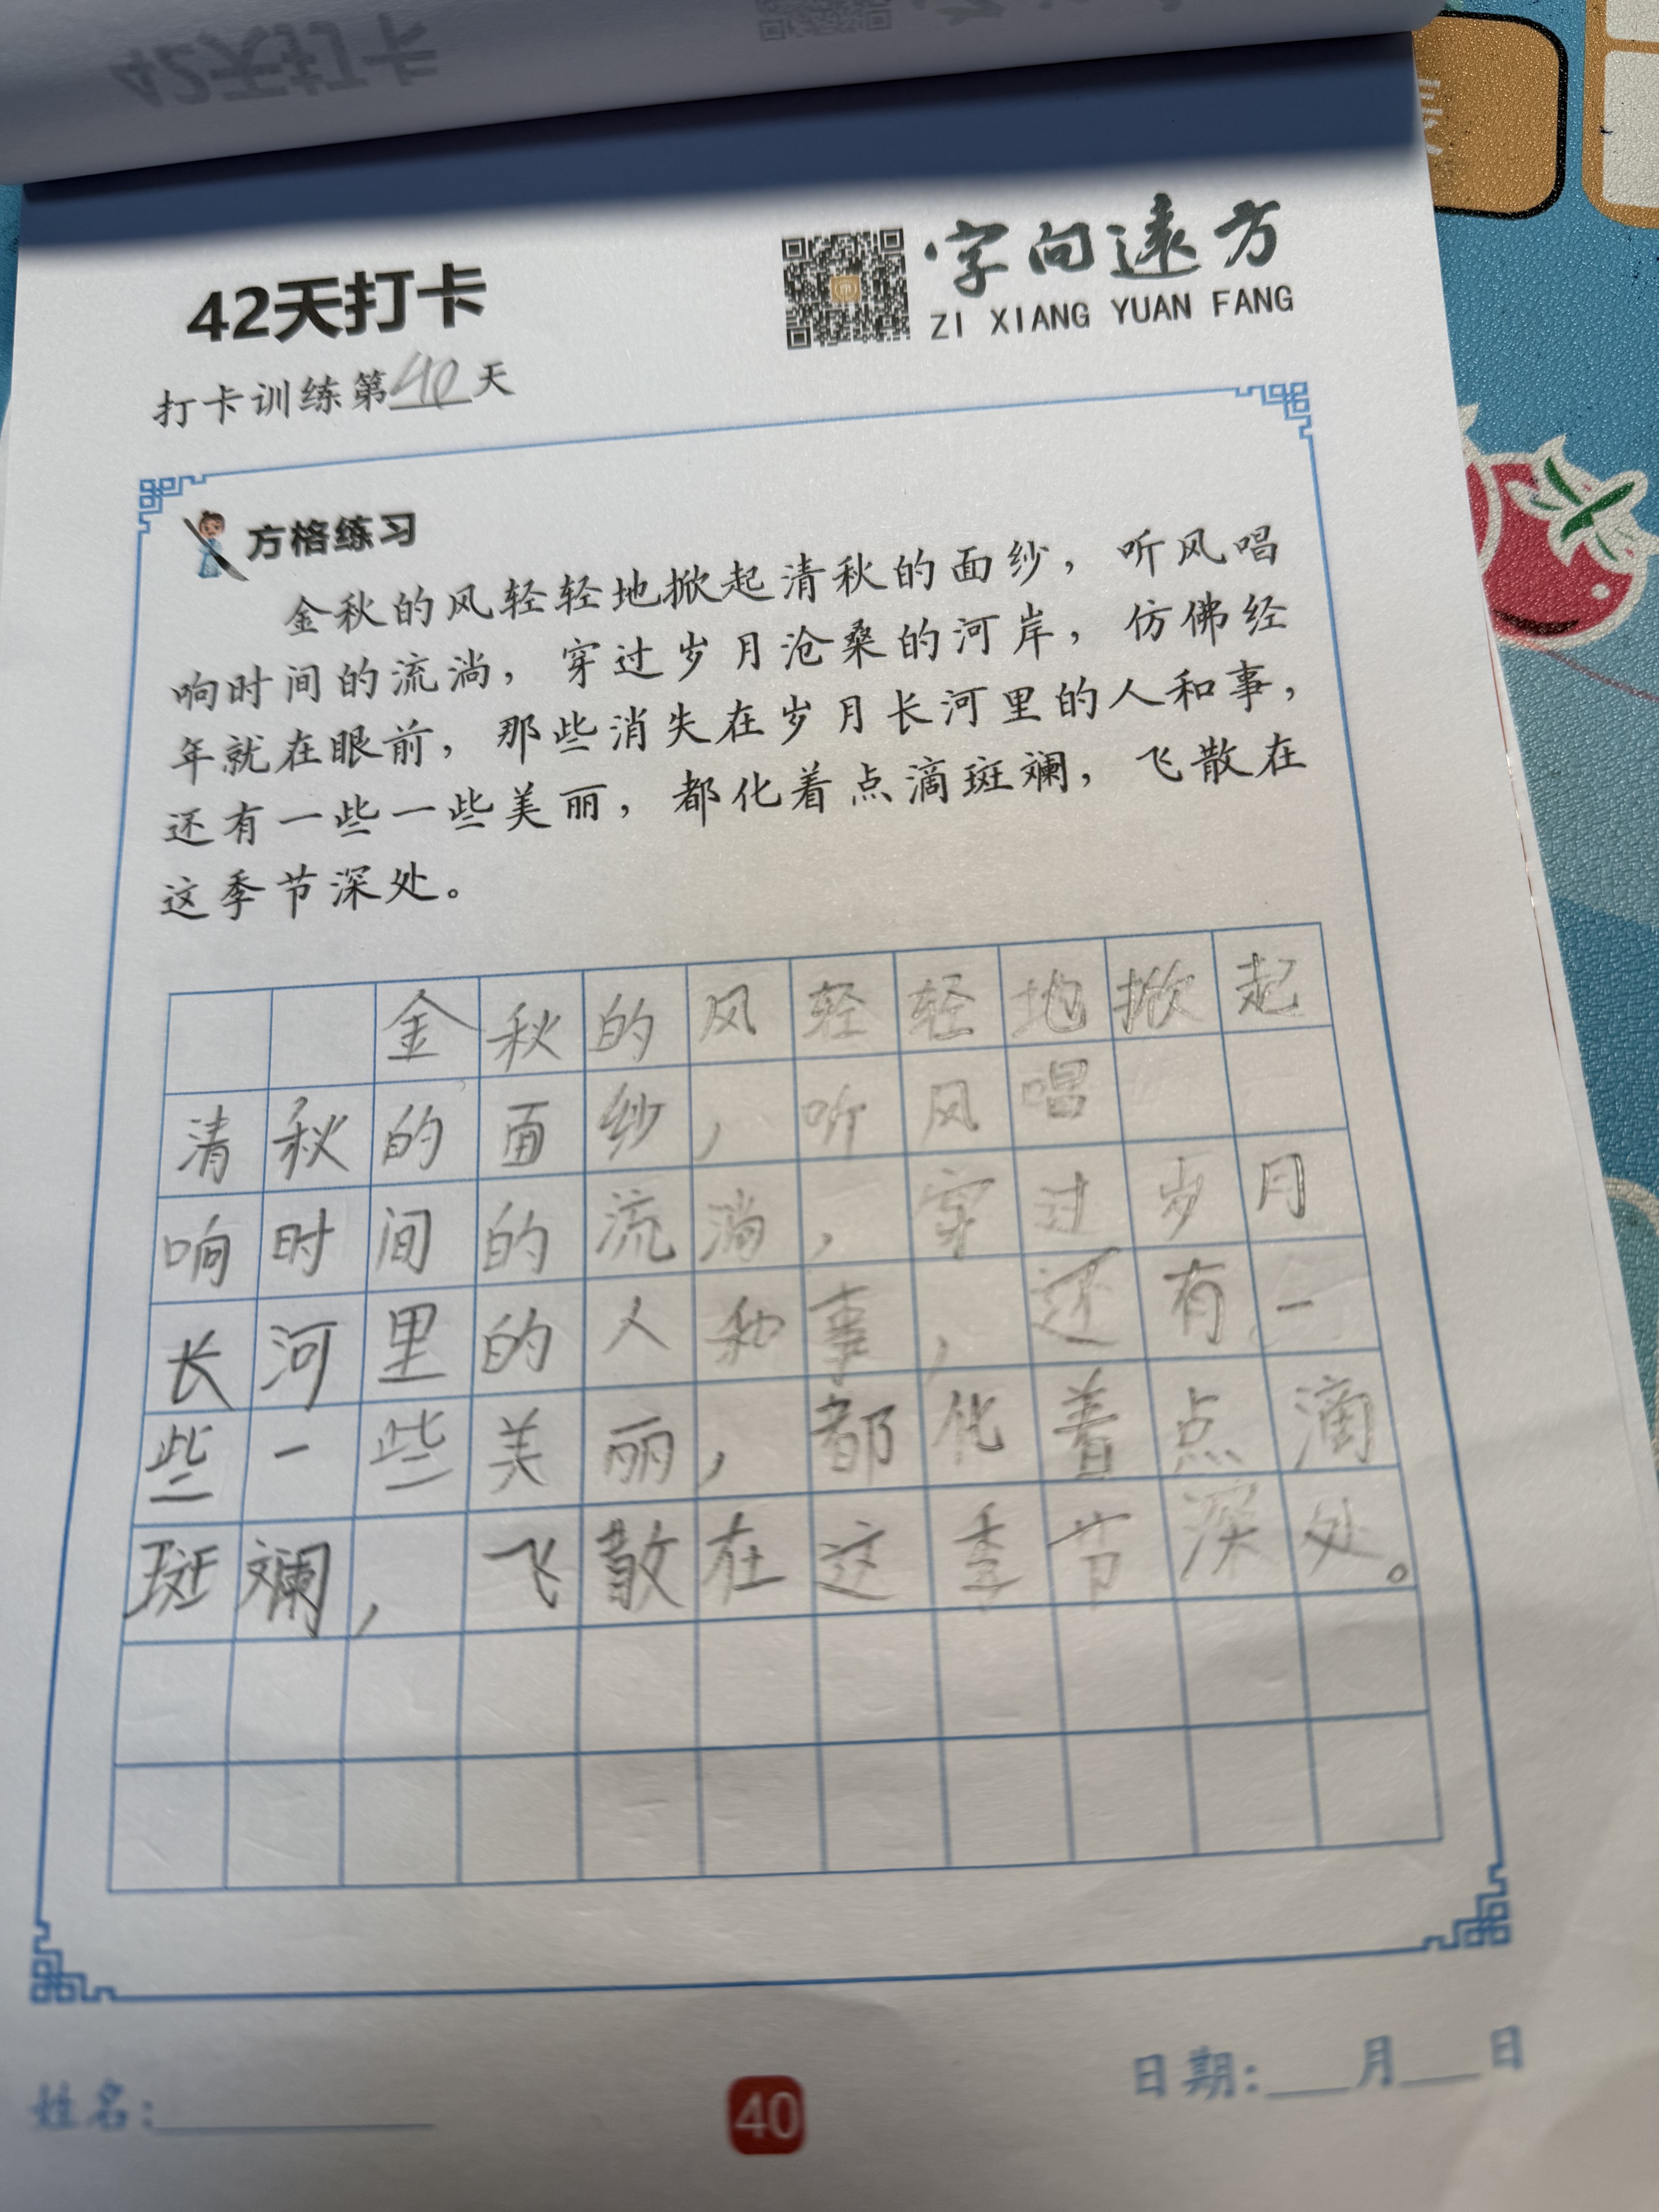 42天打卡
42天打卡
字向远方
ZI XIANG YUAN FANG
打卡训练第40天
方格练习
金秋的风轻轻地掀起清秋的面纱，听风唱
响时间的流淌，穿过岁月沧桑的河岸，仿佛经
年就在眼前，那些消失在岁月长河里的人和事，
还有一些一些美丽，都化着点滴斑斓，飞散在
这季节深处。
金秋的风轻轻地掀起
清秋的面纱，听风唱
响时间的流淌，穿过岁月
长河里的人和事，还有一
些一些美丽，都化着点滴
斑斓，飞散在这季节深处。
姓名：
40
日期：___月___日